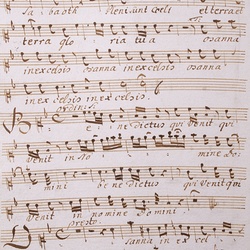 Sabaoth Pleni sunt coeli et terra et
terra gloria tua osanna
in excelsis osanna in excelsis osanna
in excelsis in excelsis.
Benedictus qui venit qui
venit in no mine Do
mini benedictus qui venit qui
venit in nomine Domini
presto
Osanna in ex